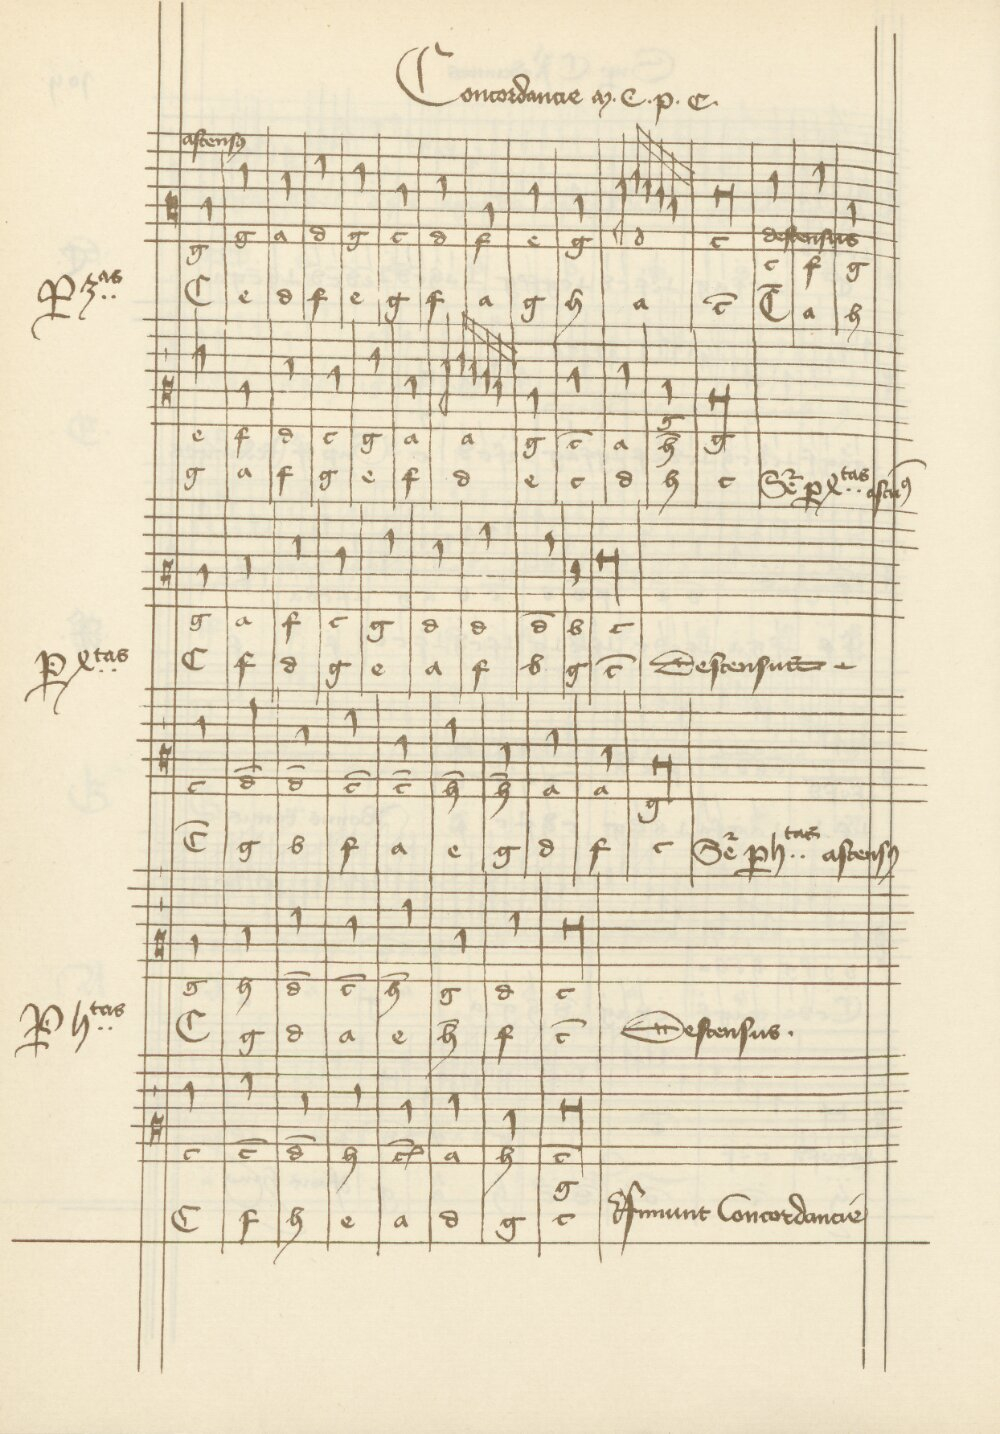 Concordancie M. C. p. C.
ascensus
g g a d g c d f e g d c descensus
c f g
P 3as
C e d f e g f a g h a c̄ C̄ a h
g
e f d c g a a g c̄ a h̄ g
g a f g e f d e c d h c Sec p 4tas ascensus
g a f c g d d d̄ b c
P 4tas
C f d g e a f b g c̄ Descensus
c d̄ d̄ c̄ c̄ h̄ h̄ a a g
C̄ g b f a e g d f c Sec p htas ascensus
g h d̄ c̄ h̄ g d c
P htas
C g d a e h̄ f c̄ Descensus.
c c̄ d̄ h c̄ a h c̄
g
C f h e a d g c Finiunt Concordancie